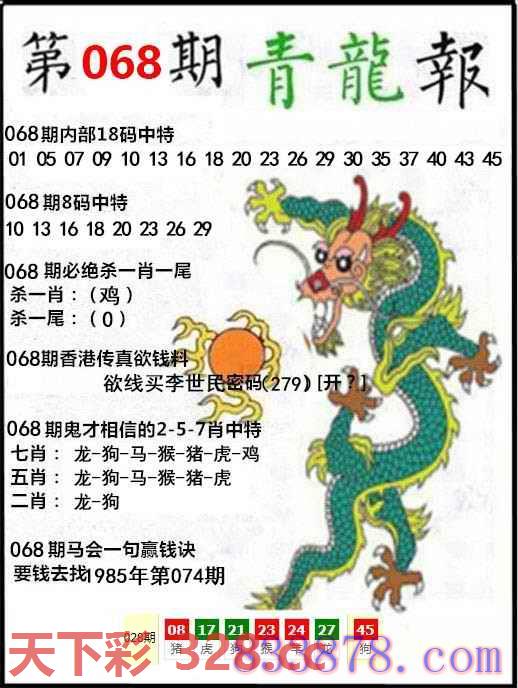 第068期青龍報
068期内部18码中特
01 05 07 09 10 13 16 18 20 23 26 29 30 35 37 40 43 45
068期8码中特
10 13 16 18 20 23 26 29
068期必绝杀一肖一尾
杀一肖：(鸡)
杀一尾：(0)
068期香港传真欲钱料
欲线买李世民密码(279)[开?]
068期鬼才相信的2-5-7肖中特
七肖：龙-狗-马-猴-猪-虎-鸡
五肖：龙-狗-马-猴-猪-虎
二肖：龙-狗
068期马会一句赢钱诀
要钱去找1985年第074期
028期 08 17 21 23 24 27 45
猪 虎 狗 猴 羊 龙 狗
天下彩 328.cc